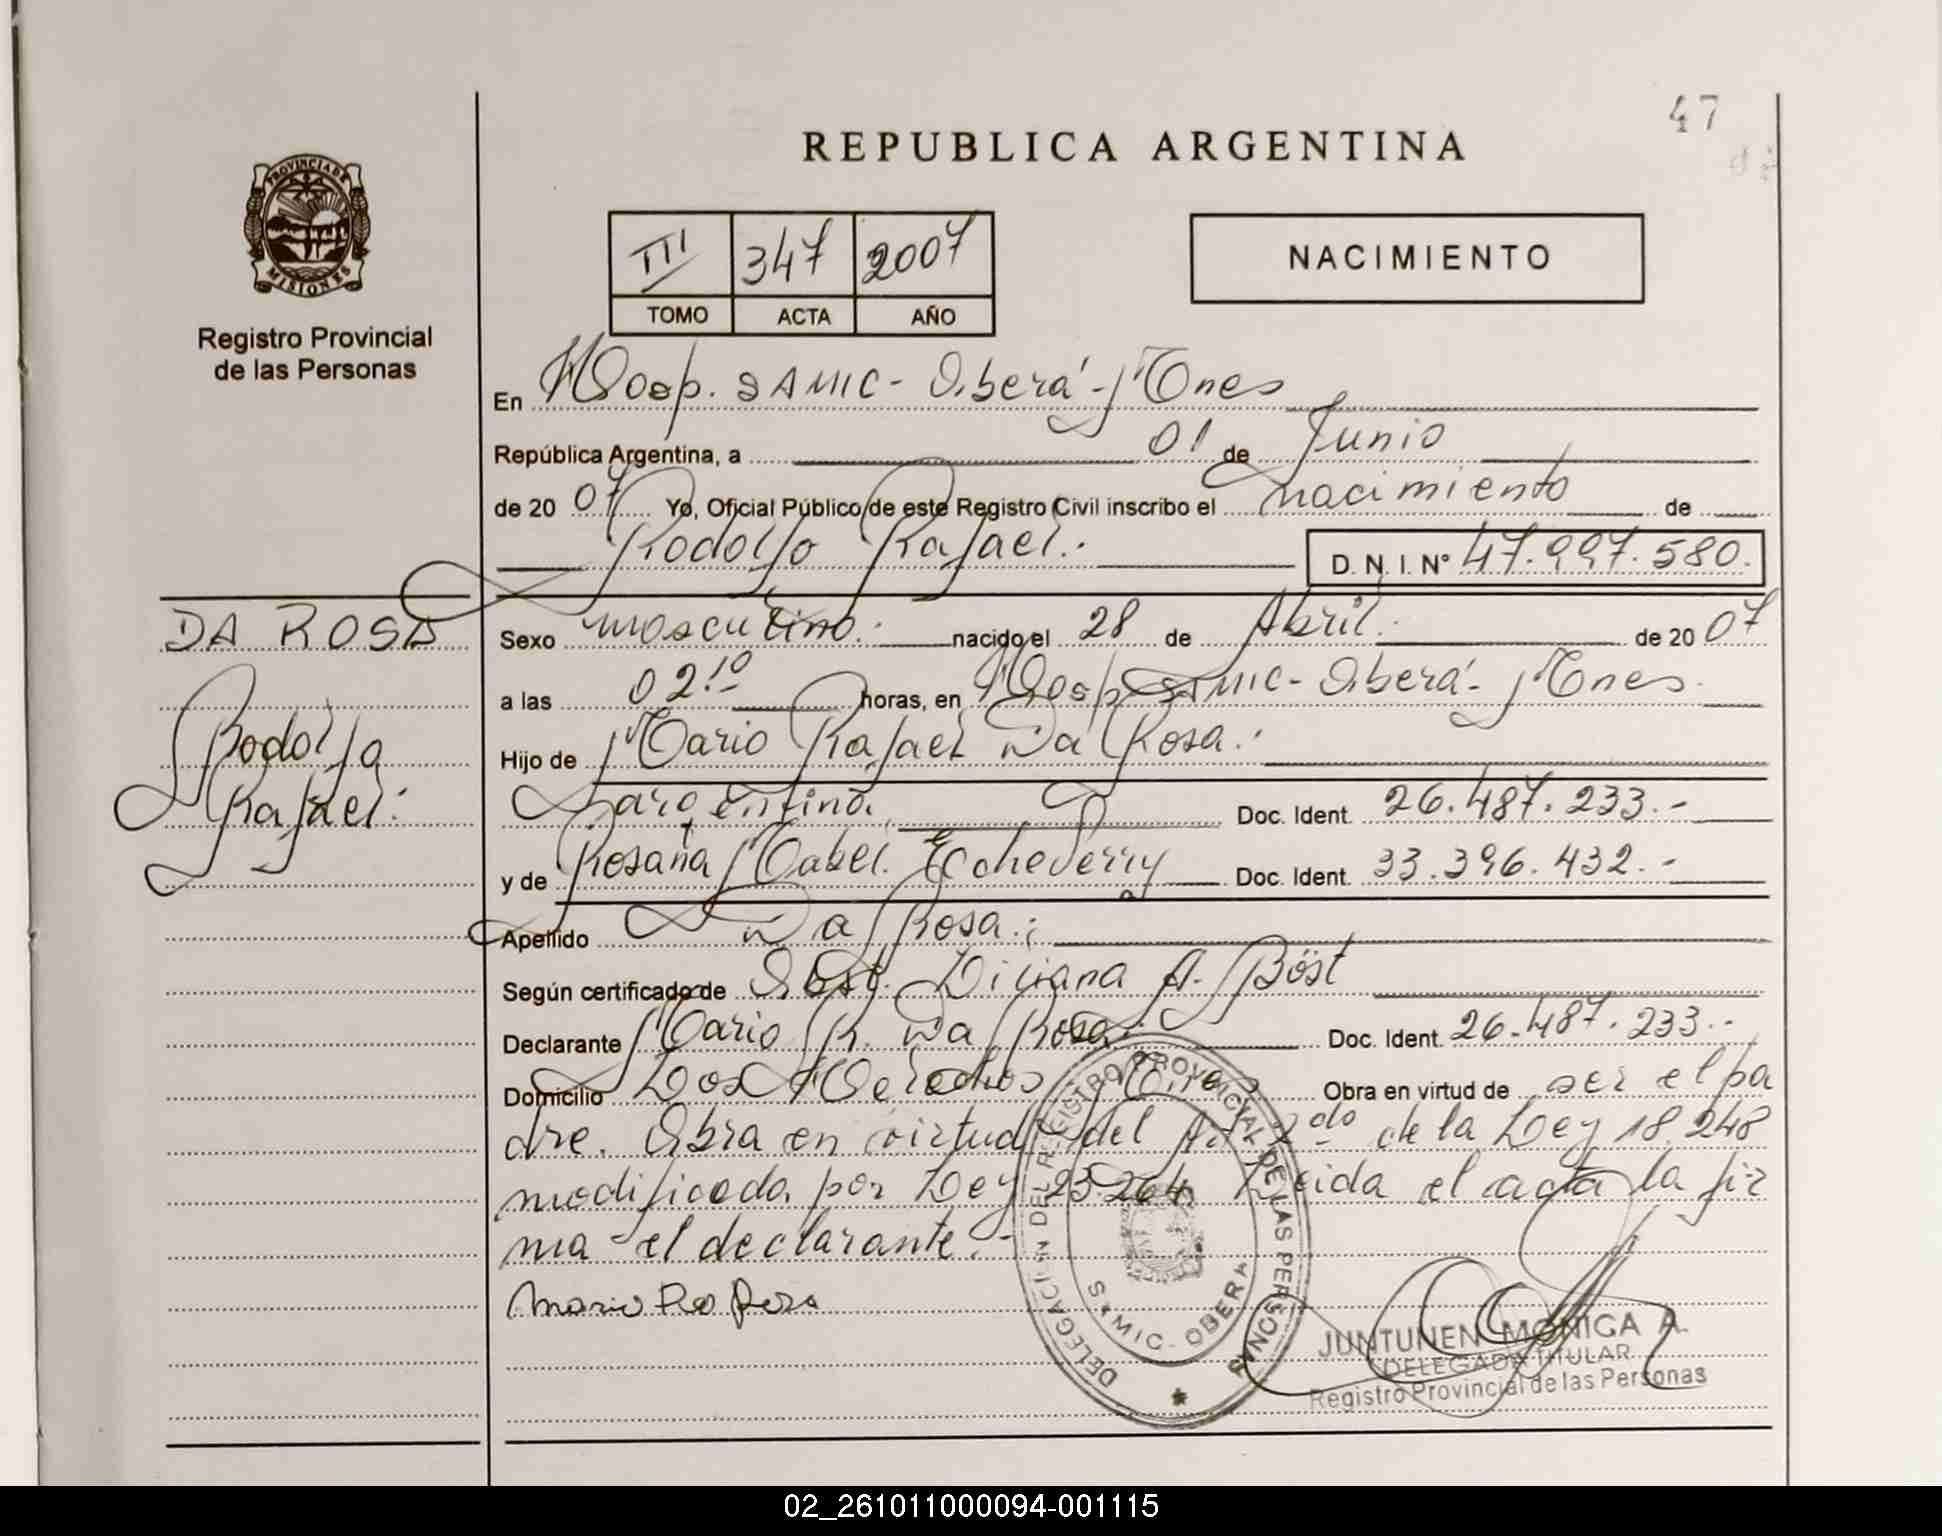 47
REPUBLICA ARGENTINA
PROVINCIA DE
MISIONES
Registro Provincial
de las Personas
III 347 2007
TOMO ACTA AÑO
NACIMIENTO
En Hosp. SAMIC - Oberá - Mnes
República Argentina, a 01 de Junio
de 20 07 Yo, Oficial Público de este Registro Civil inscribo el nacimiento de
Rodolfo Rafael.- D. N. I. Nº 47.997.580.
DA ROSA
Rodolfo
Rafael.-
Sexo masculino.- nacido el 28 de Abril.- de 20 07
a las 02:10 horas, en Hosp. SAMIC - Oberá - Mnes.
Hijo de Mario Rafael Da Rosa.-
argentino. Doc. Ident. 26.487.233.-
y de Rosana Mabel Echeverry Doc. Ident. 33.396.432.-
Apellido Da Rosa.-
Según certificado de Obst. Liliana A. Böst
Declarante Mario R. Da Rosa.- Doc. Ident. 26.487.233.-
Domicilio Dos Mnes Obra en virtud de ser el pa
dre. Obra en virtud del Art. 2do de la Ley 18.248
modificada por Ley 23.264 Leida el acta la fir
ma el declarante.-
Mario Rosa
DELEGACION DEL REGISTRO PROVINCIAL DE LAS PERSONAS
SAMIC - OBERA
JUNTUNEN MONICA A.
DELEGADA TITULAR
Registro Provincial de las Personas
02_261011000094-001115